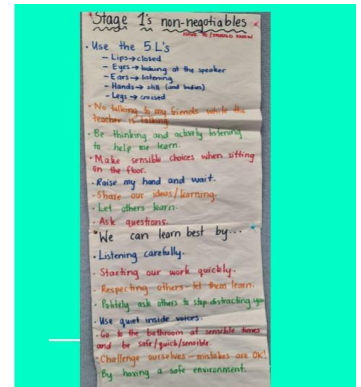 Stage 1's non-negotiables
• Use the 5 L's
– Lips → closed
– Eyes → looking at the speaker
– Ears → listening
– Hands → still (and bodies)
– Legs → crossed
• No talking to my friends while the
teacher is talking
• Be thinking and actively listening
to help me learn.
• Make sensible choices when sitting
on the floor.
• Raise my hand and wait.
• Share our ideas/learning.
• Let others learn.
• Ask questions.
*We can learn best by...*
• Listening carefully.
• Starting our work quickly.
• Respecting others – let them learn.
• Politely ask others to stop distracting you
• Use quiet inside voices.
• Go to the bathroom at sensible times
and be safe/quick/sensible.
• Challenge ourselves – mistakes are OK!
• By having a safe environment.